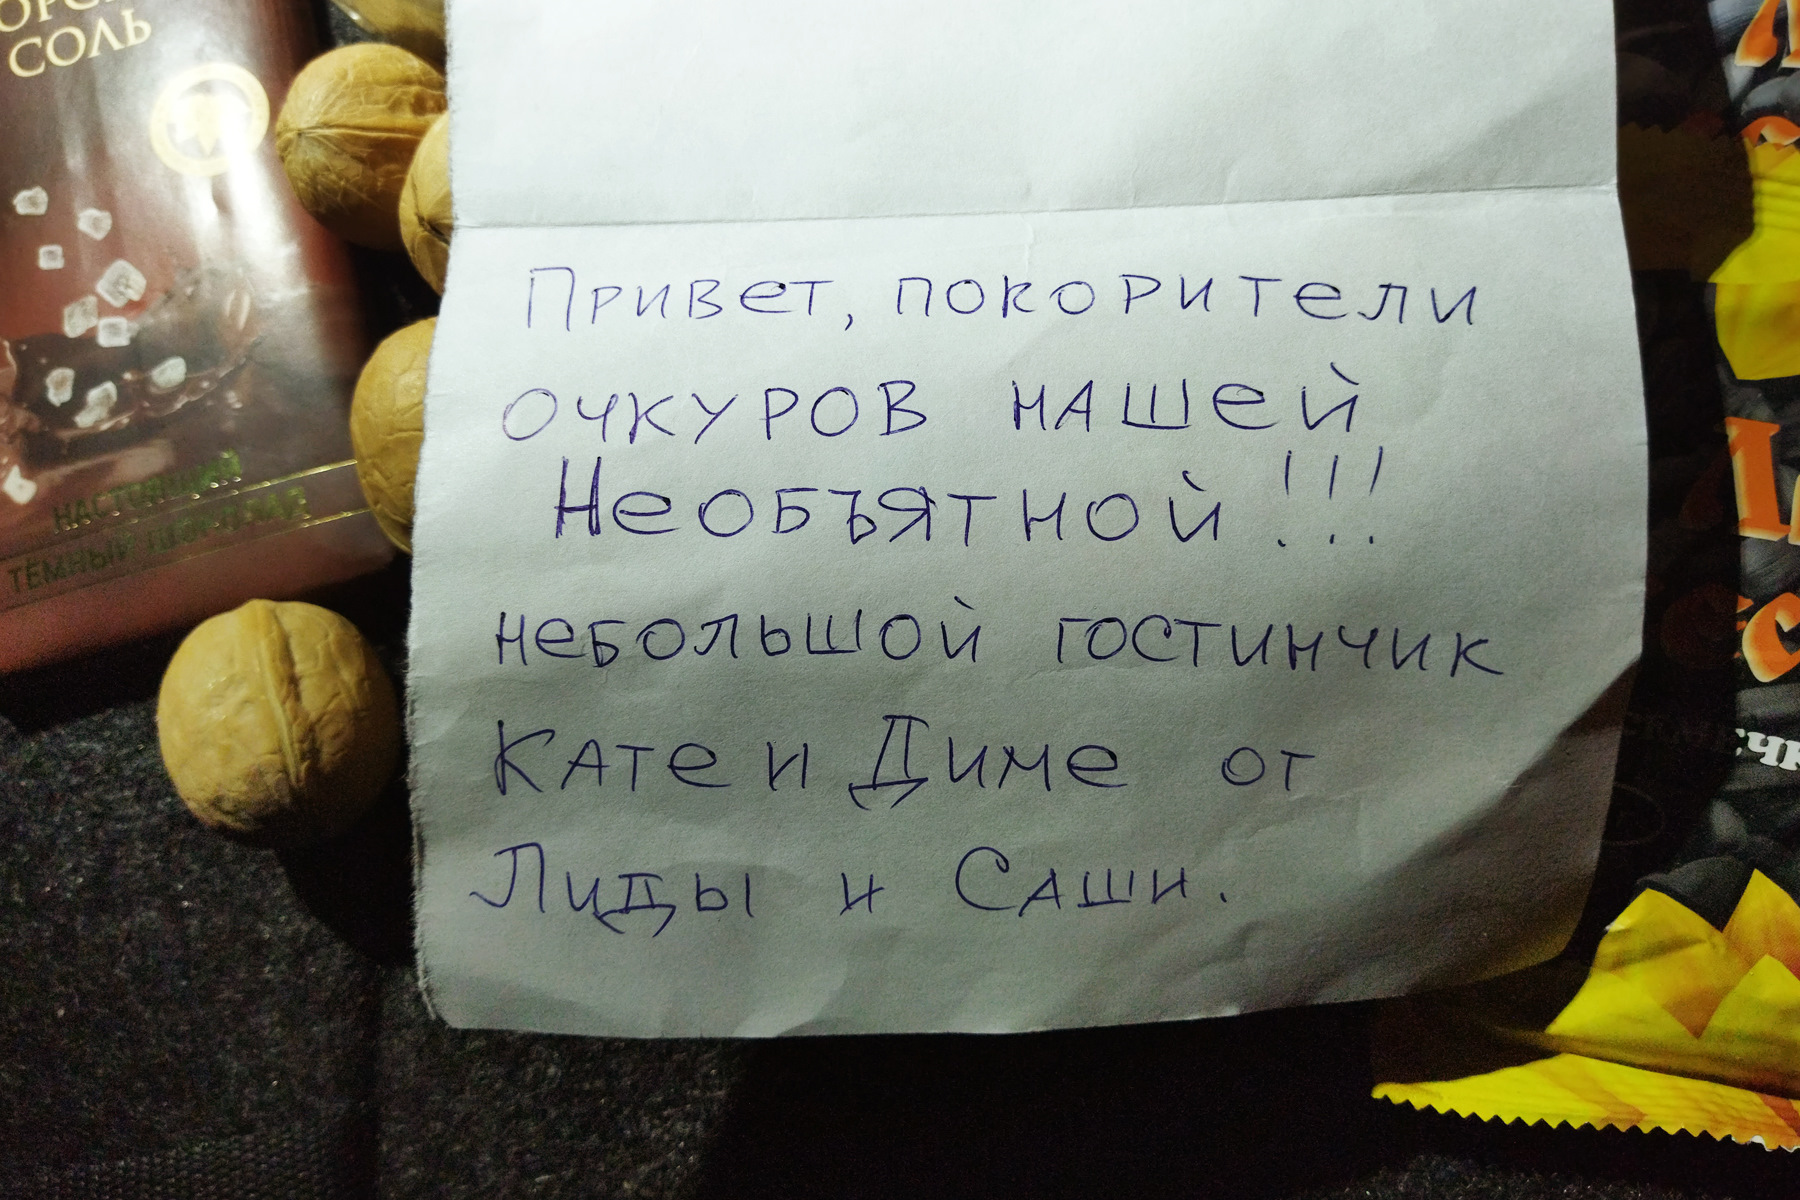 СОЛЬ
НАСТОЯЩИЙ
ТЁМНЫЙ ШОКОЛАД
Привет, покорители
очкуров нашей
Необъятной!!!
небольшой гостинчик
Кате и Диме от
Лиды и Саши.